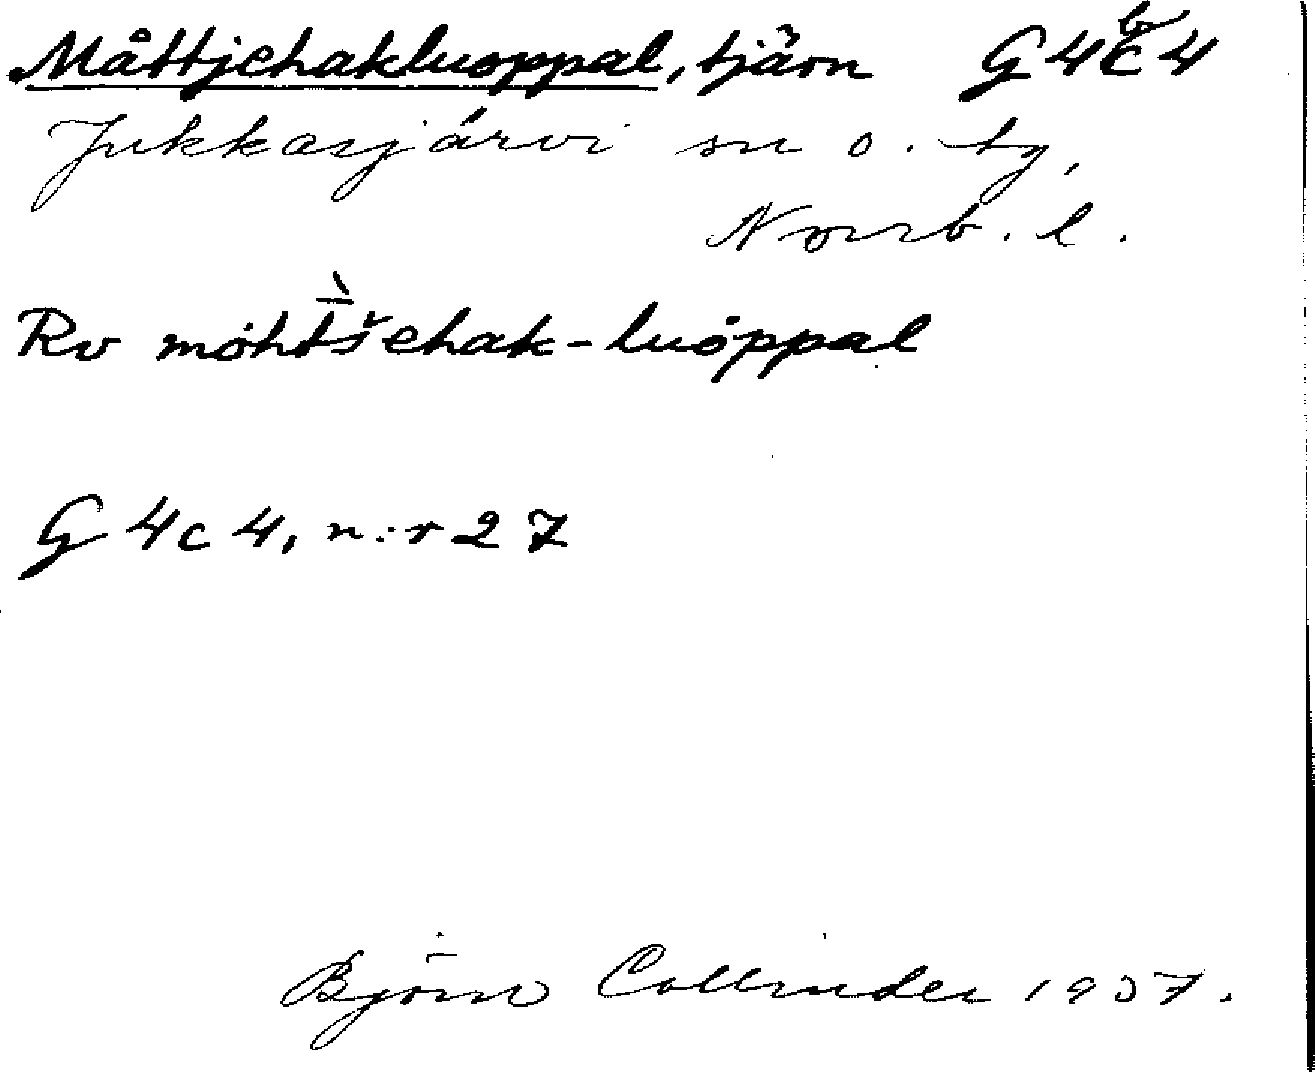 Måttjchakluoppal, tjärn G4c4
b
Jukkasjärvi sn o. tg,
Norrb. l.
Rv möhtšchak-luöppal
G4c4, n:r 27
Björn Collinder 1937.